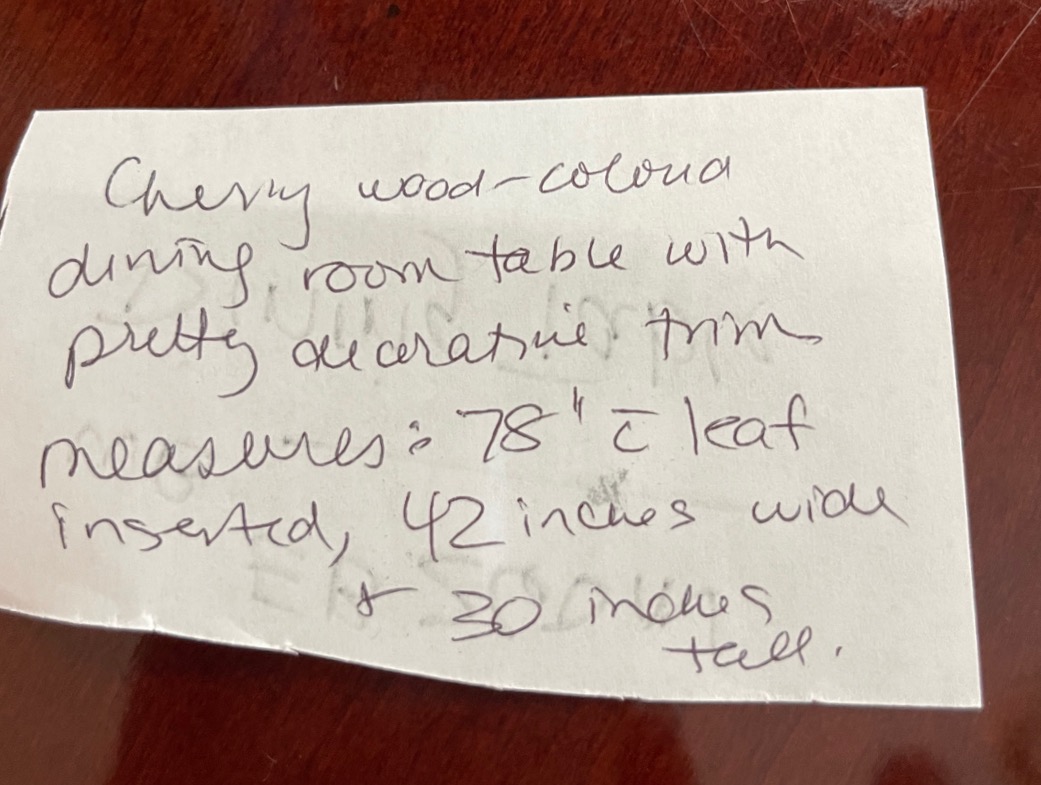 Cherry wood-colored
dining room table with
pretty decorative trim
measures: 78" c̄ leaf
inserted, 42 inches wide
+ 30 inches
tall.